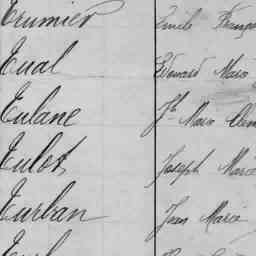 Trumier Emile Franço
Tual Edouard Marie
Tulane Jh Marie Clem
Tulot Joseph Marie
Turban Jean Marie